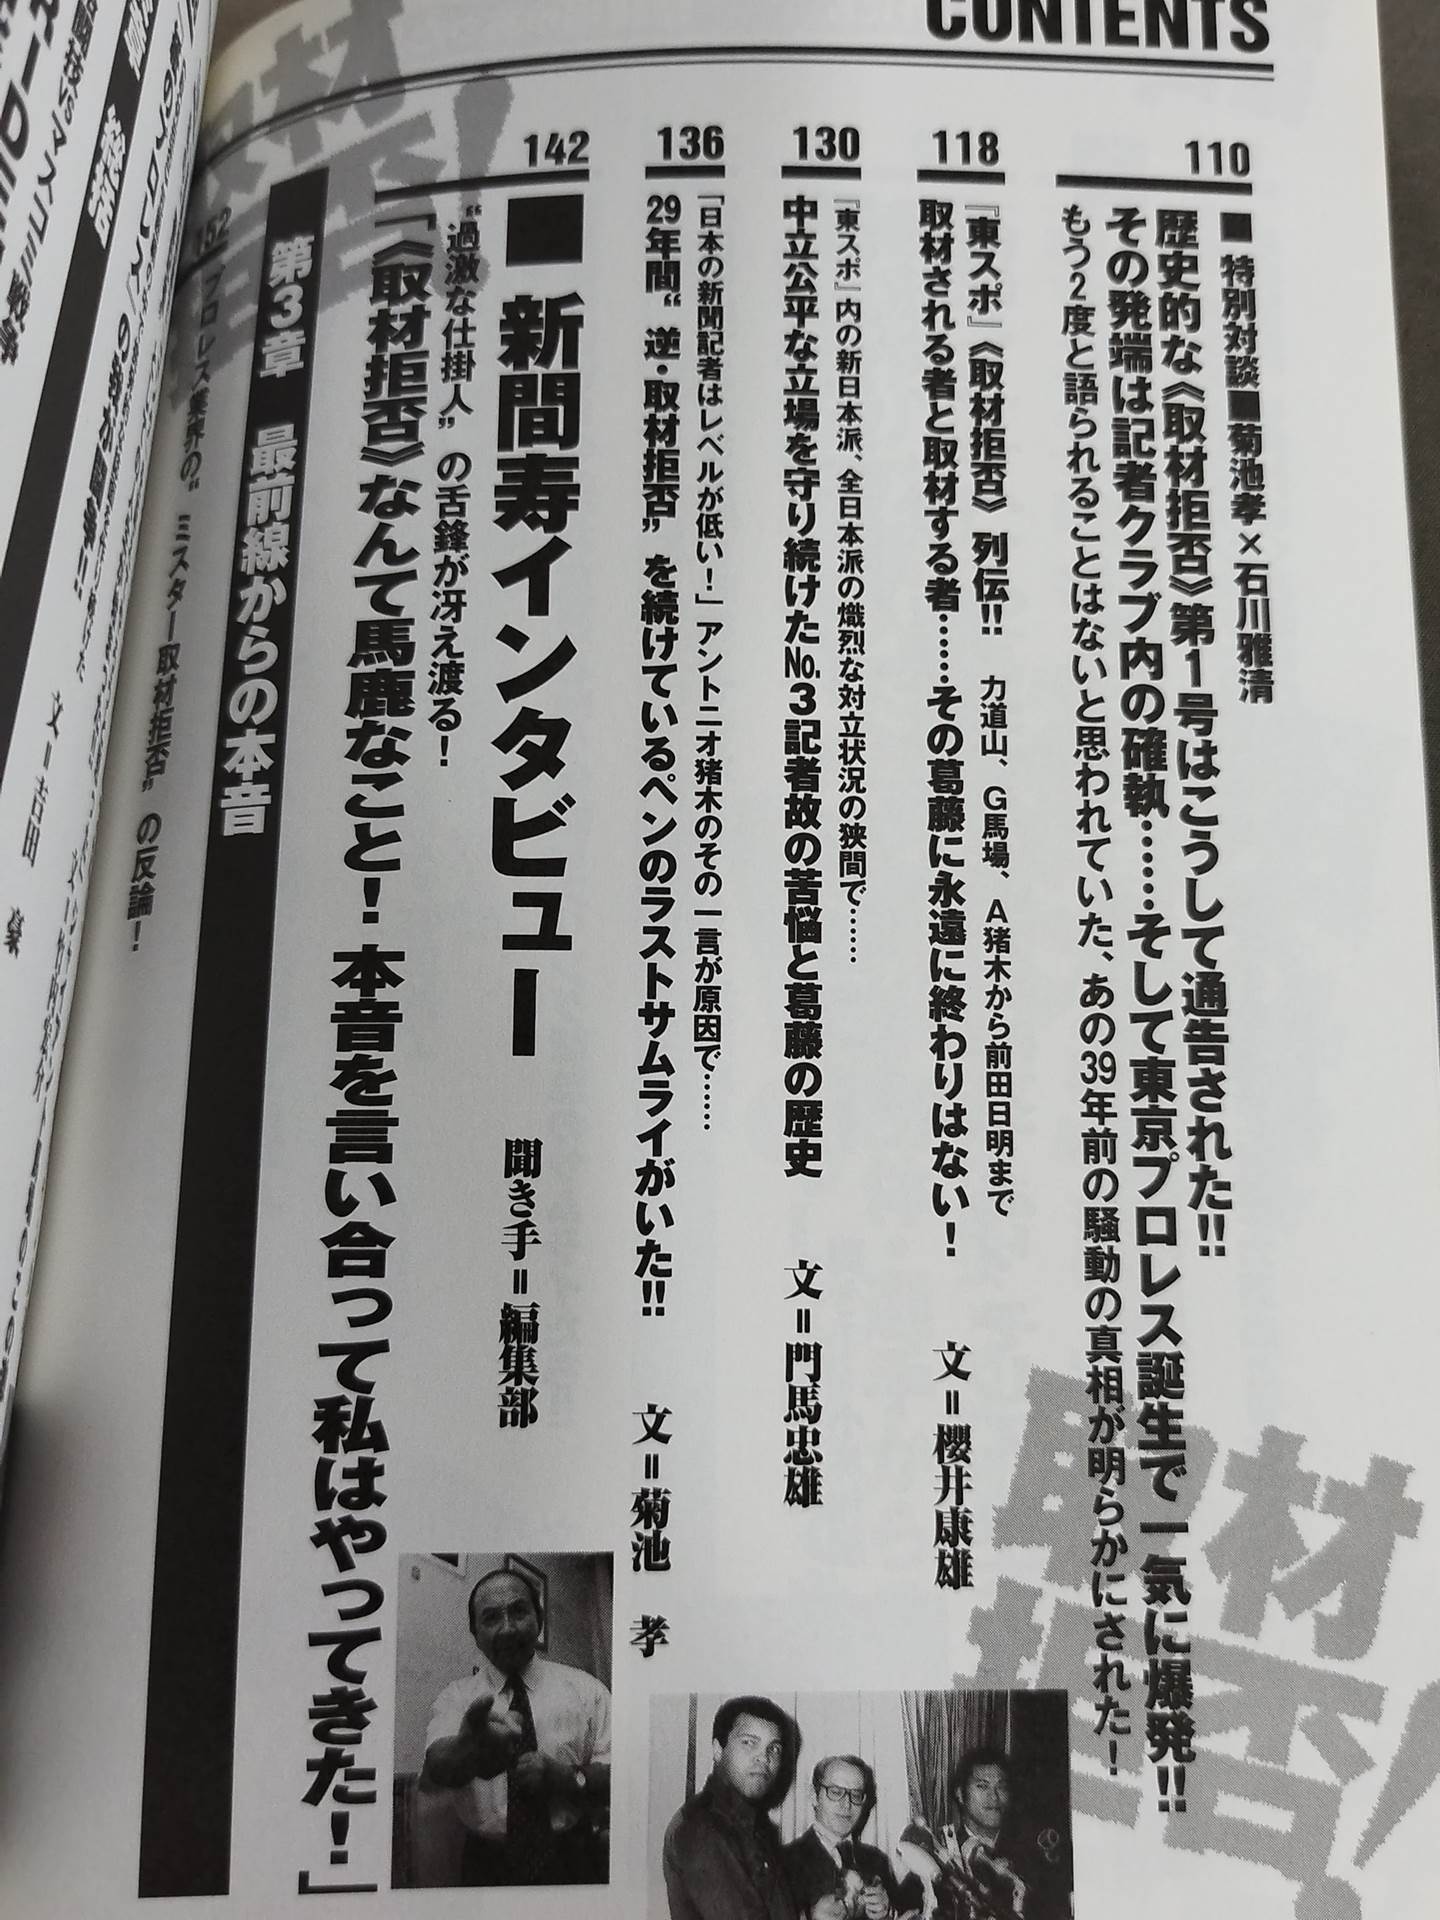 CONTENTS
110
■特別対談■菊池孝×石川雅清
歴史的な《取材拒否》第1号はこうして通告された!!
その発端は記者クラブ内の確執……そして東京プロレス誕生で一気に爆発!!
もう2度と語られることはないと思われていた、あの39年前の騒動の真相が明らかにされた!
118
『東スポ』《取材拒否》列伝!! 力道山、G馬場、A猪木から前田日明まで
取材される者と取材する者……その葛藤に永遠に終わりはない! 文＝櫻井康雄
130
『東スポ』内の新日本派、全日本派の熾烈な対立状況の狭間で……
中立公平な立場を守り続けたNo.3記者故の苦悩と葛藤の歴史 文＝門馬忠雄
136
「日本の新聞記者はレベルが低い!」アントニオ猪木のその一言が原因で……
29年間“逆・取材拒否”を続けているペンのラストサムライがいた!! 文＝菊池 孝
142
■新間寿インタビュー 聞き手＝編集部
“過激な仕掛人”の舌鋒が冴え渡る!
「《取材拒否》なんて馬鹿なこと! 本音を言い合って私はやってきた!」
第3章 最前線からの本音
152
プロレス業界の“ミスター取材拒否”の反論!
文＝吉田 豪
取材拒否!
取材拒否!